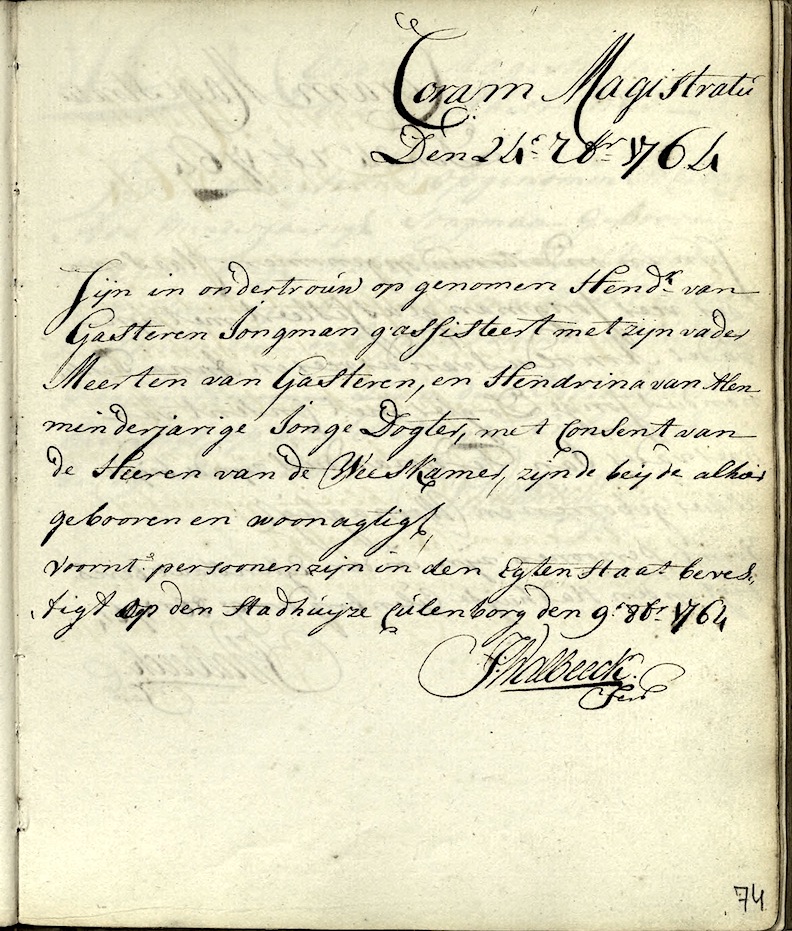 Coram Magistratu
Den 24e 7br 1764
Sijn in ondertrouw op genomen Hendk van
Gasteren Jongman g'assisteert met zijn vader
Meerten van Gasteren, en Hendrina van
minderjarige Jonge Dogter, met Consent van
de Heeren van de Weeskamer, zijnde beijde alhier
gebooren en woonagtigh,
voornt. persoonen zijn in den Egten staat beves,
tigt op den Stadhuijze Culenborg den 9e 8br 1764
74